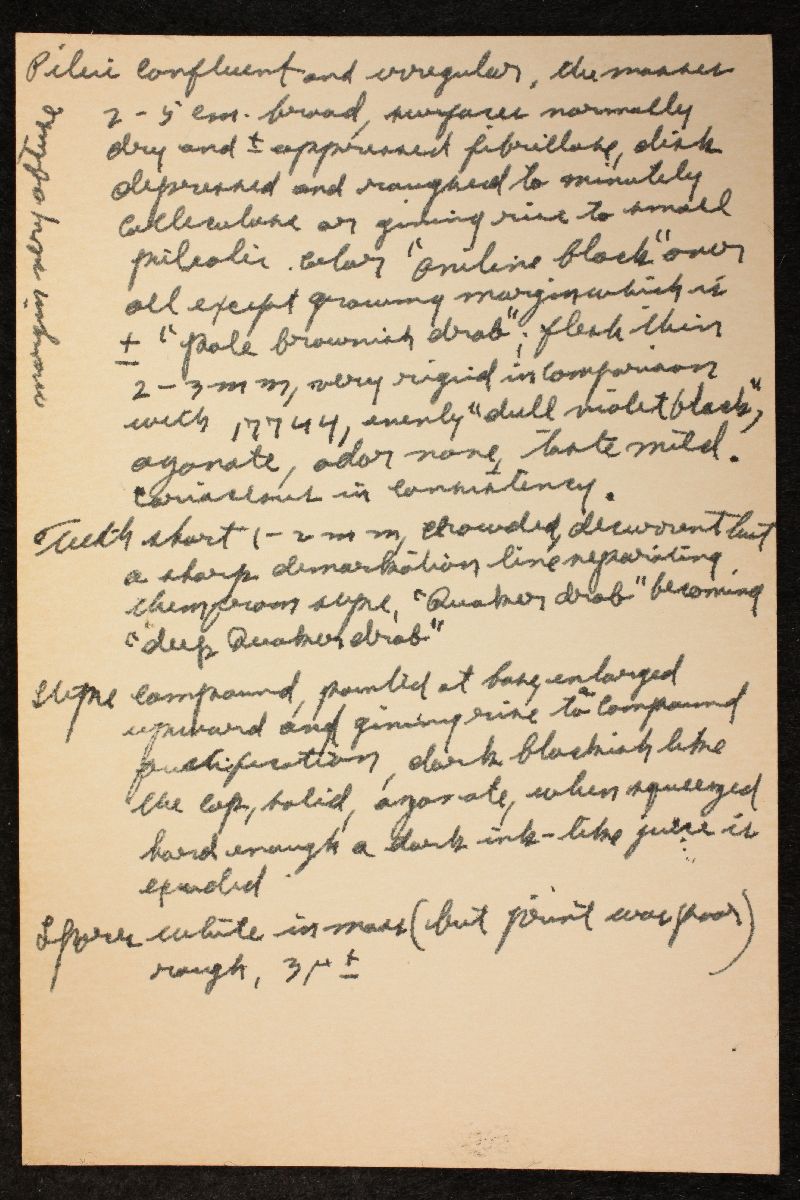 Pileii confluent and irregular, the masses
2-5 cm. broad, surfaces normally
dry and ± appressed fibrillose, disk
depressed and roughed to minutely
colliculose or giving rise to small
pileoli. color "aniline black" over
all except growing margin which is
± "pale brownish drab"; flesh thin
2-3 mm, very rigid in comparison
with 17744, evenly "dull violet black",
azonate, odor none, taste mild.
coriaceous in consistency.
Teeth short 1-2 mm, crowded, decurrent but
a sharp demarkation line separating
them from stipe, "Quaker drab" becoming
"deep Quaker drab"
Stipe compound, pointed at base, enlarged
upward and giving rise to a compound
fructification, dark blackish like
the cap, solid, azonate, when squeezed
hard enough a dark ink-like juice is
exuded
Spores white in mass (but print was poor)
rough, 3µ ±
margin sterile often